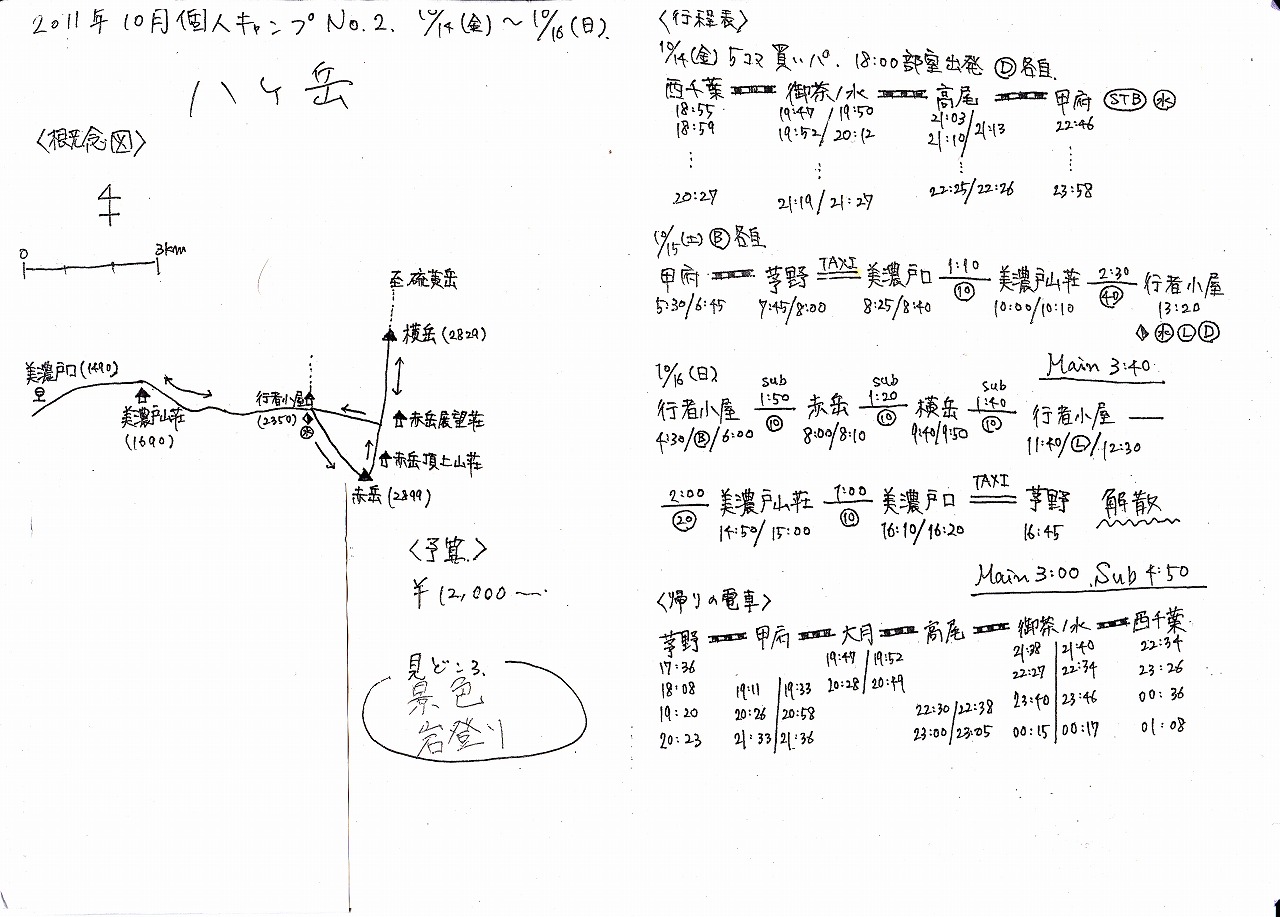 2011年10月個人キャンプNo.2. 10/14(金)～10/16(日)
八ヶ岳
〈概念図〉
0 3km
至硫黄岳
横岳(2829)
美濃戸口(1490)
美濃戸山荘
(1690)
行者小屋
(2350)
水
赤岳展望荘
赤岳頂上山荘
赤岳(2899)
〈予算〉
¥12,000～
見どころ
景色
岩登り
〈行程表〉
10/14(金) 5コマ 買いパ. 18:00部室出発 Ⓓ各自
西千葉 御茶ノ水 高尾 甲府 STB 水
18:55 19:47/19:50 21:03
18:59 19:52/20:12 21:10/21:13 22:46
⋮ ⋮ ⋮ ⋮
20:27 21:19/21:27 22:25/22:26 23:58
10/15(土) Ⓑ各自
甲府 茅野 TAXI 美濃戸口 1:10 ⑩ 美濃戸山荘 2:30 ㊵ 行者小屋
5:30/6:45 7:45/8:00 8:25/8:40 10:00/10:10 13:20
水 Ⓛ Ⓓ
Main 3:40
10/16(日)
行者小屋 sub 1:50 ⑩ 赤岳 sub 1:20 ⑩ 横岳 sub 1:40 ⑩ 行者小屋
4:30/Ⓑ/6:00 8:00/8:10 9:40/9:50 11:40/Ⓛ/12:30
2:00 ⑳ 美濃戸山荘 1:00 ⑩ 美濃戸口 TAXI 茅野 解散
14:50/15:00 16:10/16:20 16:45
Main 3:00 Sub 4:50
〈帰りの電車〉
茅野 甲府 大月 高尾 御茶ノ水 西千葉
17:36 19:47/19:52 21:38 21:40 22:34
18:08 19:11 19:33 20:28/20:49 22:27 22:34 23:26
19:20 20:26 20:58 22:30/22:38 23:40 23:46 00:36
20:23 21:33 21:36 23:00/23:05 00:15 00:17 01:08